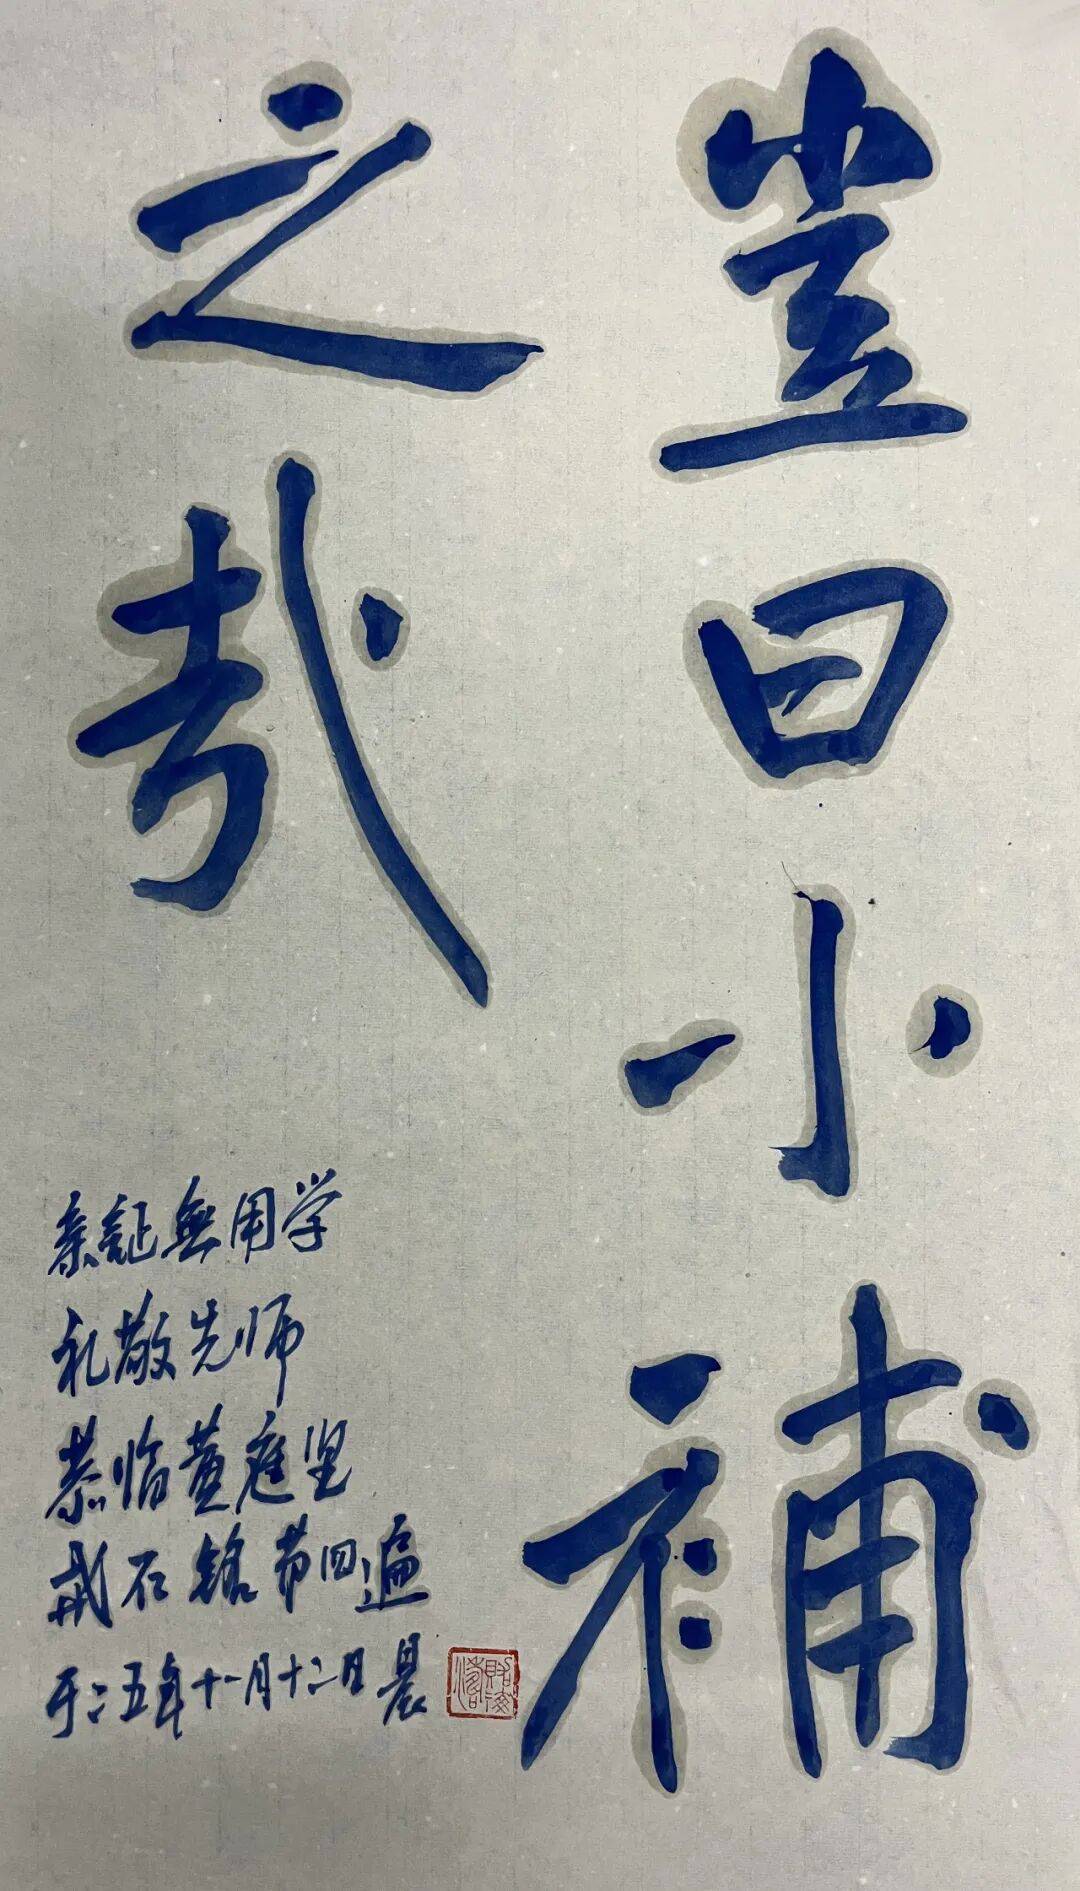 豈曰小補
之哉
亲証無用学
礼敬先师
恭临黄庭坚
戒石铭第四遍
于二五年十一月十二日晨